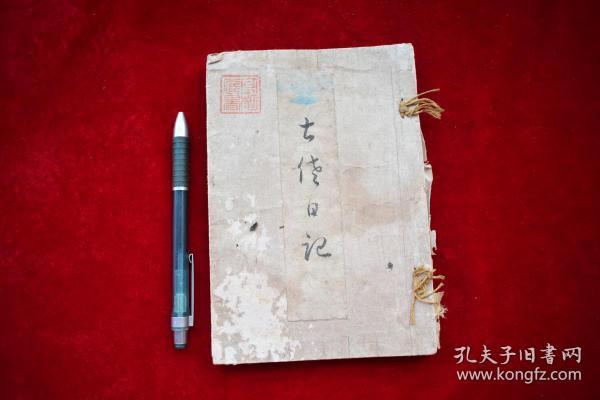 土佐日記
孔夫子旧書网
www.kongfz.com